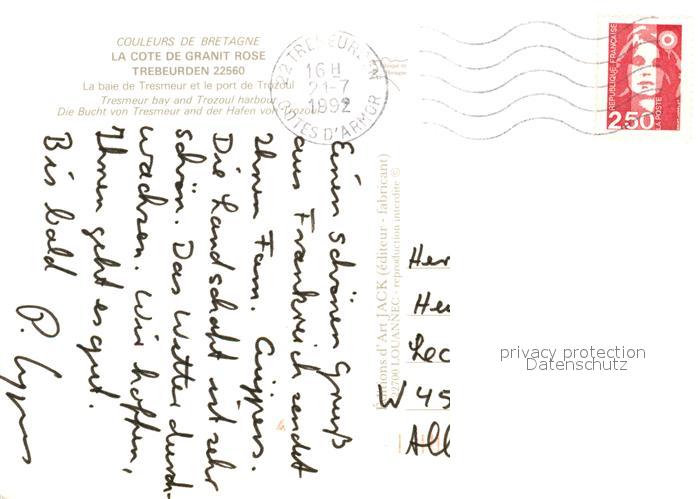 COULEURS DE BRETAGNE
LA COTE DE GRANIT ROSE
TREBEURDEN 22560
La baie de Tresmeur et le port de Trozoul
Tresmeur bay and Trozoul harbour
Die Bucht von Tresmeur und der Hafen von Trozoul
22 TREBEURDEN
16 H
21-7
1992
COTES D'ARMOR
REPUBLIQUE FRANÇAISE
2,50
LA POSTE
Einen schönen Gruß
aus Frankreich sendet
Ihnen Fam. Cuijpers.
Die Landschaft ist sehr
schön. Das Wetter durch-
wachsen. Wir hoffen,
Ihnen geht es gut.
Bis bald
Editions d'Art JACK (éditeur - fabricant)
22700 LOUANNEC - reproduction interdite ©
Her
He
W 45
All
privacy protection
Datenschutz